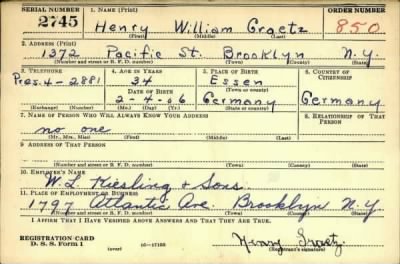 SERIAL NUMBER 1. NAME (Print) ORDER NUMBER
2745 Henry William Graetz 850
(First) (Middle) (Last)
2. ADDRESS (Print)
1372 Pacific St. Brooklyn N.Y.
(Number and street or R. F. D. number) (Town) (County) (State)
3. TELEPHONE 4. AGE IN YEARS 5. PLACE OF BIRTH 6. COUNTRY OF CITIZENSHIP
Pres. 4-2881 34 Essen
DATE OF BIRTH (Town or county)
2-4-06 Germany Germany
(Exchange) (Number) (Mo.) (Day) (Yr.) (State or country)
7. NAME OF PERSON WHO WILL ALWAYS KNOW YOUR ADDRESS 8. RELATIONSHIP OF THAT PERSON
no one
(Mr., Mrs., Miss) (First) (Middle) (Last)
9. ADDRESS OF THAT PERSON
(Number and street or R. F. D. number) (Town) (County) (State)
10. EMPLOYER'S NAME
W. L. Kiesling & Sons
11. PLACE OF EMPLOYMENT OR BUSINESS
1797 Atlantic Ave. Brooklyn N.Y.
(Number and street or R. F. D. number) (Town) (County) (State)
I AFFIRM THAT I HAVE VERIFIED ABOVE ANSWERS AND THAT THEY ARE TRUE.
REGISTRATION CARD
D. S. S. Form 1 (over) Henry Graetz
(Registrant's signature)